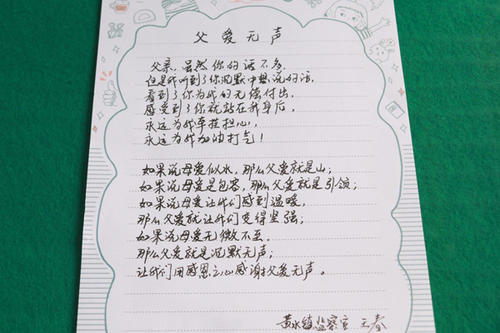 父爱无声
父亲，虽然你的话不多，
但是我听到了你沉默中想说的话，
看到了你为我的无偿付出，
感受到了你就站在我身后，
永远为我牵挂担心，
永远为我加油打气！
如果说母爱似水，那么父爱就是山；
如果说母爱是包容，那么父爱就是引领；
如果说母爱让我们感到温暖，
那么父爱就让我们变得坚强；
如果说母爱无微不至，
那么父爱就是沉默无声；
让我们用感恩之心感谢父爱无声。
黄水镇监察室 王春